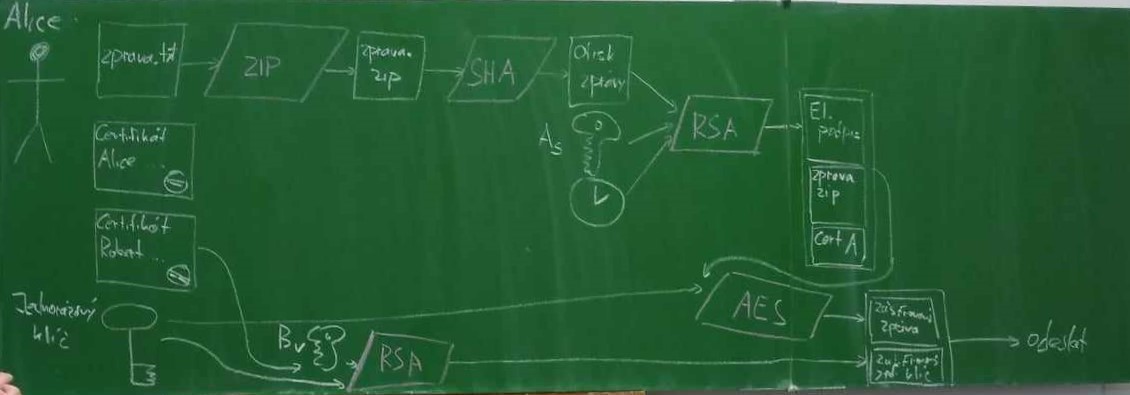 Alice
zprava.txt
ZIP
zprava.
zip
SHA
Otisk
zprávy
As
RSA
El.
podpis
zprava
zip
Cert A
Certifikát
Alice ...
Certifikát
Robert ...
Jednorázový
klíč
Bv
RSA
AES
zpráva
klíč
odeslat